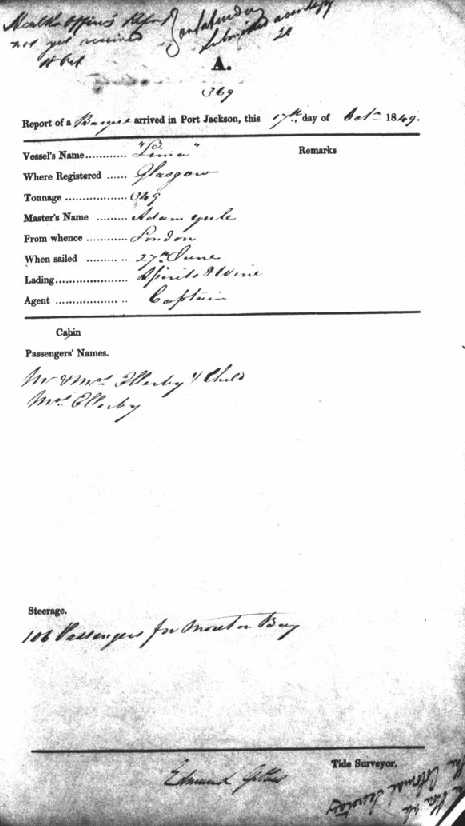 Health Officer's Report
not yet received
Calendar
Submitted accordingly
A.
369
Report of a Barque arrived in Port Jackson, this 17th day of Oct 1849.
Vessel's Name "Lima" Remarks
Where Registered Glasgow
Tonnage 369
Master's Name Adam Yule
From whence London
When sailed 27th June
Lading Spirits & Wine
Agent Captain
Cabin
Passengers' Names.
Mr & Mrs Ellerby & Child
Mrs Ellerby
Steerage.
106 Passengers for Moreton Bay
Tide Surveyor.
Edmund